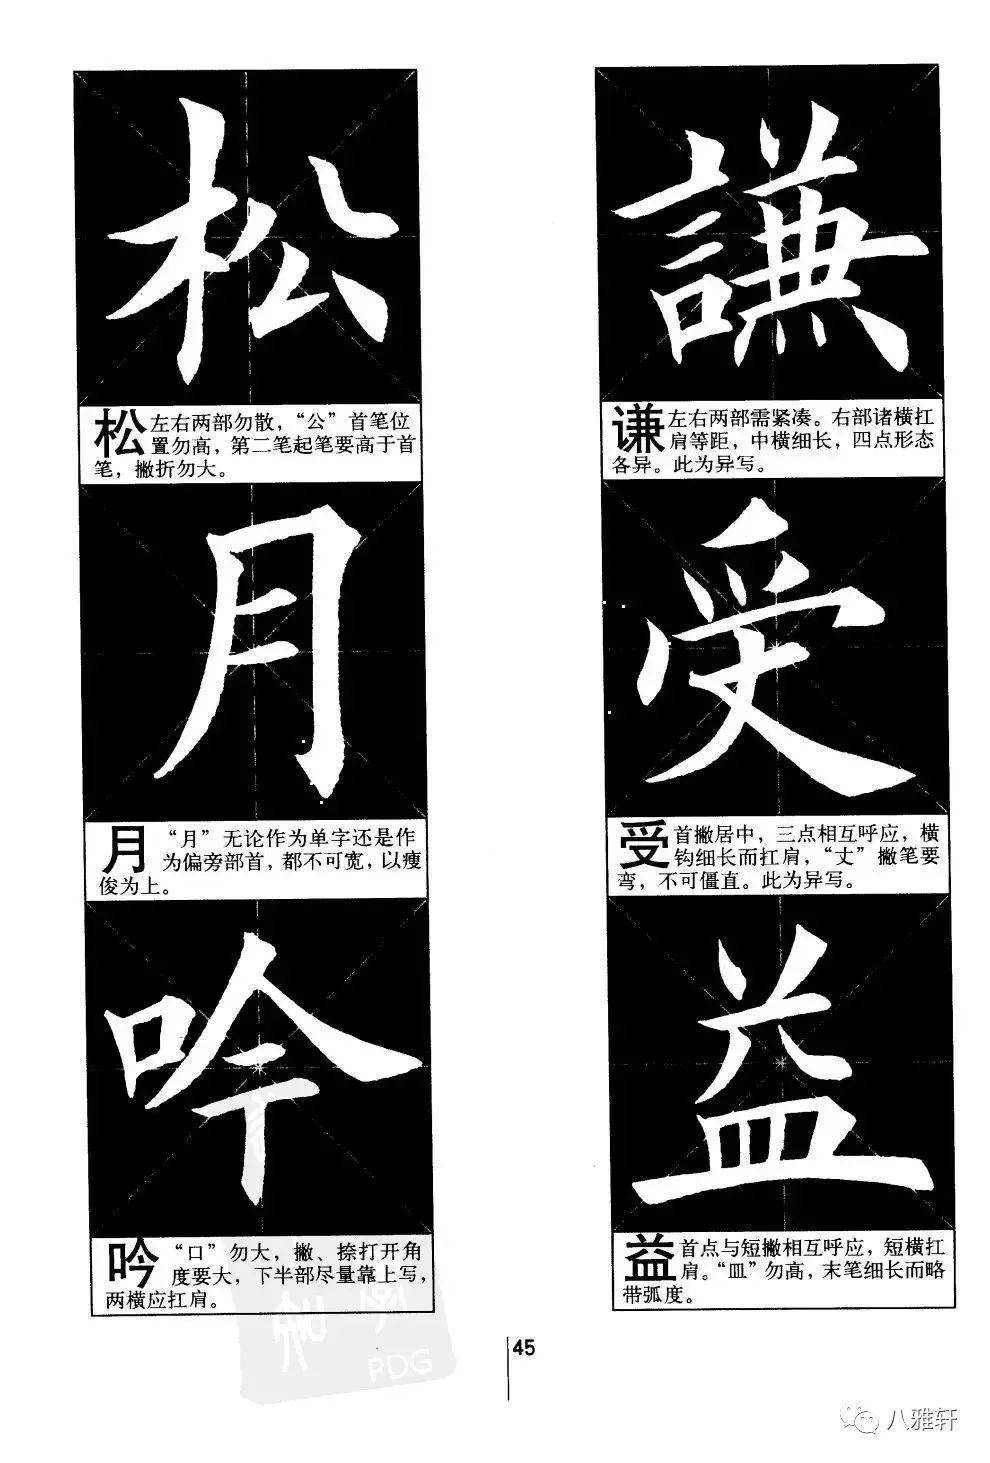 松
松 左右两部勿散，“公”首笔位
置勿高，第二笔起笔要高于首
笔，撇折勿大。
月
月 “月”无论作为单字还是作
为偏旁部首，都不可宽，以瘦
俊为上。
吟
吟 “口”勿大，撇、捺打开角
度要大，下半部尽量靠上写，
两横应扛肩。
謙
谦 左右两部需紧凑。右部诸横扛
肩等距，中横细长，四点形态
各异。此为异写。
受
受 首撇居中，三点相互呼应，横
钩细长而扛肩，“丈”撇笔要
弯，不可僵直。此为异写。
益
益 首点与短撇相互呼应，短横扛
肩。“皿”勿高，末笔细长而略
带弧度。
45
PDG
八雅轩